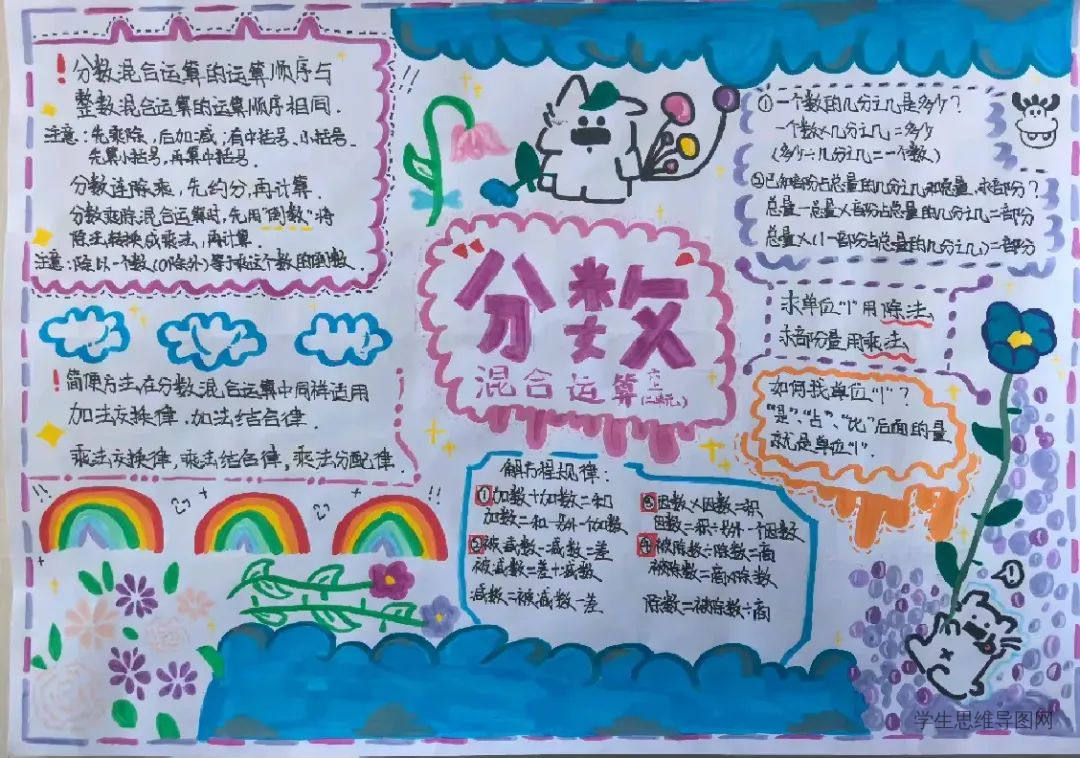 ！分数混合运算的运算顺序与
整数混合运算的运算顺序相同.
注意：先乘除,后加减,有中括号、小括号、
先算小括号,再算中括号.
分数连除乘,先约分,再计算.
分数乘除混合运算时,先用“倒数”将
除法转换成乘法,再计算.
注意：除以一个数(0除外)等于乘这个数的倒数.
！简便方法在分数混合运算中同样适用
加法交换律,加法结合律.
乘法交换律,乘法结合律,乘法分配律.
分数
混合运算
六上
(二单元)
①一个数的几分之几是多少?
一个数×几分之几=多少
(多少÷几分之几=一个数)
②已知部分占总量的几分之几和总量,求部分?
总量-总量×部分占总量的几分之几=部分
总量×(1-部分占总量的几分之几)=部分
求单位“1”用除法.
求部分量用乘法.
如何找单位“1”?
“是”、“占”、“比”后面的量
就是单位“1”.
解方程规律：
①加数+加数=和
加数=和-另外一个加数
②被减数-减数=差
被减数=差+减数
减数=被减数-差
③因数×因数=积
因数=积÷另外一个因数
④被除数÷除数=商
被除数=商×除数
除数=被除数÷商
学生思维导图网